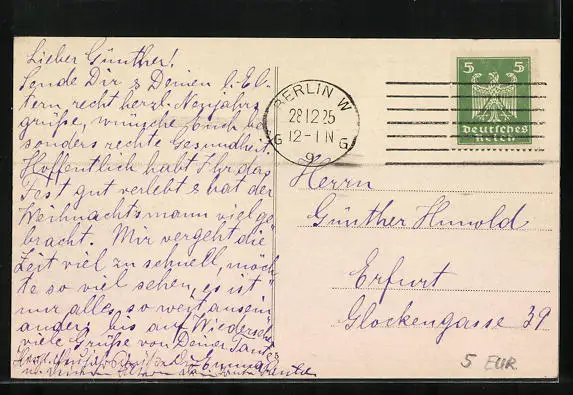 Lieber Günther!
Sende Dir & Deinen l. El-
tern recht herzl. Neujahrs
grüße, wünsche Euch be
sonders rechte Gesundheit.
Hoffentlich habt Ihr das
Fest gut verlebt & hat der
Weihnachtsmann viel ge
bracht. Mir vergeht die
Zeit viel zu schnell, möch
te so viel sehen, es ist
nur alles so weit ausein
ander, bis auf Wiedersehn
viele Grüße von Deiner Tante
Emma
BERLIN W
28.12.25
12-1 N
G G
9
5 5
Deutsches
Reich
Herrn
Günther Hunold
Erfurt
Glockengasse 39
5 EUR